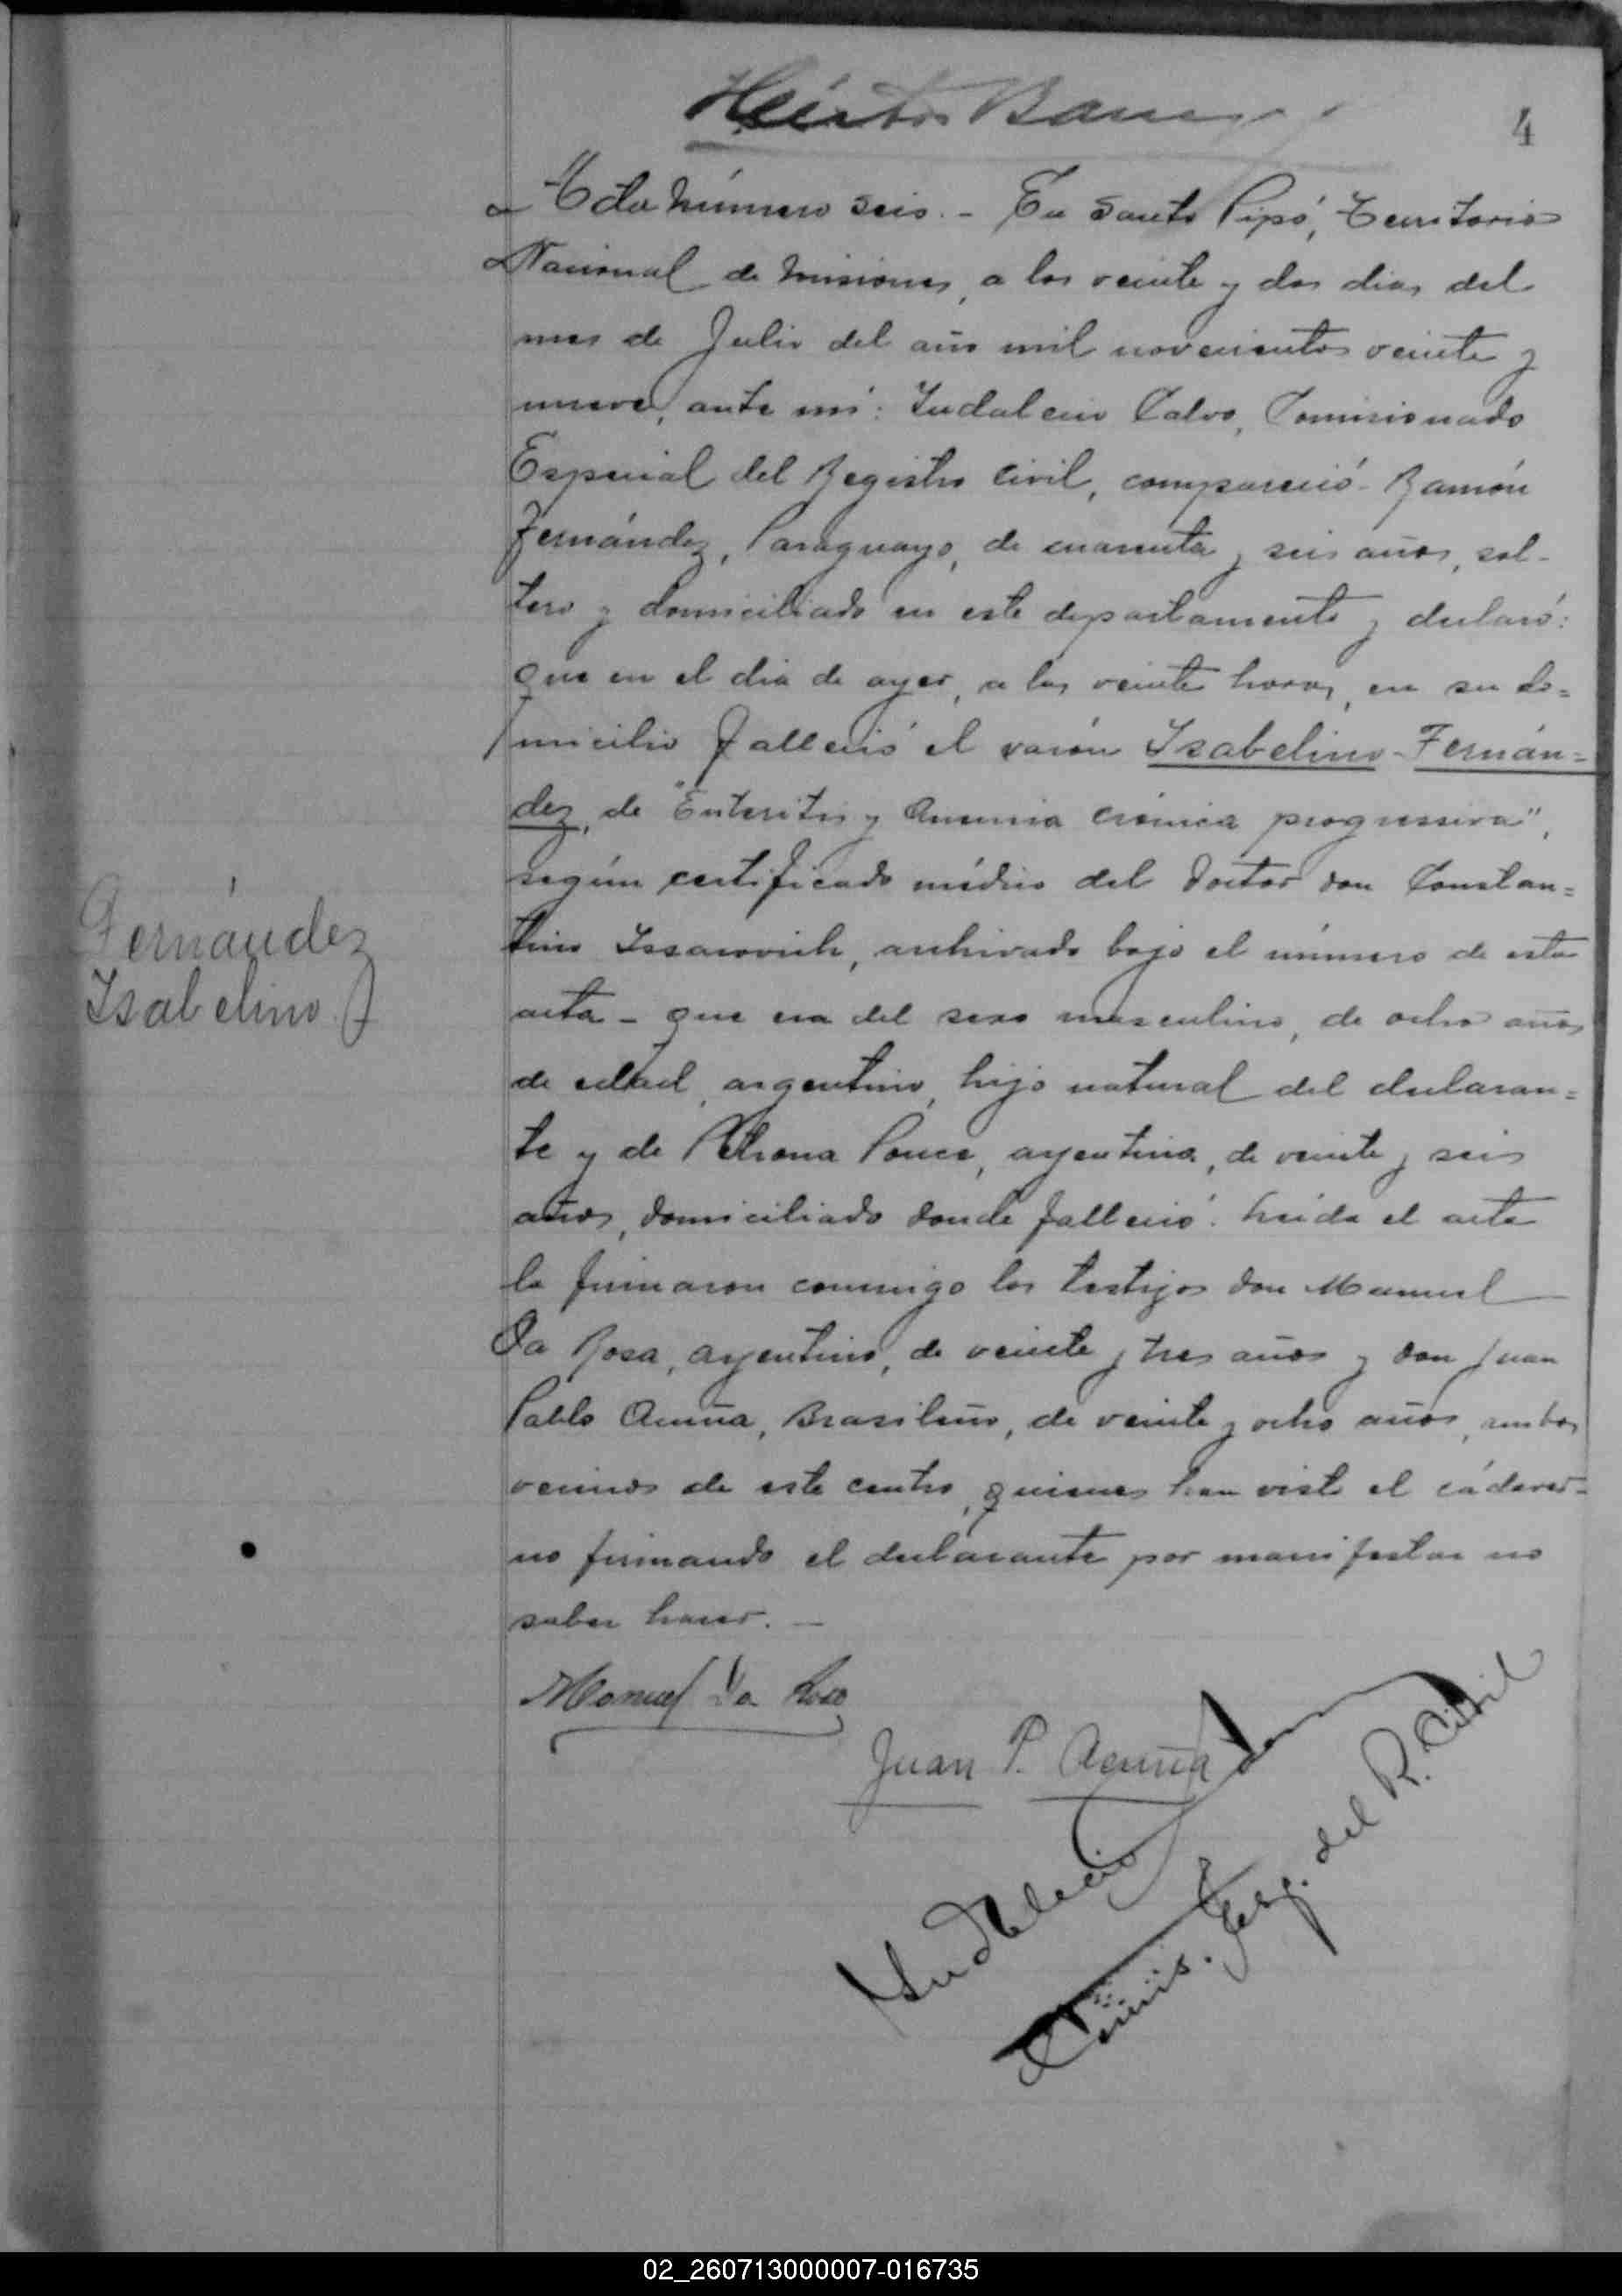 4
Acta número seis. - En Santo Pipó, Territorio
Nacional de Misiones, a los veinte y dos dias del
mes de Julio del año mil novecientos veinte y
nueve, ante mi: Indalecio Calvo, Comisionado
Especial del Registro Civil, compareció - Ramón
Fernández, Paraguayo, de cuarenta y seis años, sol-
tero y domiciliado en este departamento y declaró:
que en el dia de ayer, a las veinte horas, en su do=
micilio falleció el varón Isabelino - Fernán=
dez, de "Enteritis y Anemia crónica progressiva",
según certificado médico del Doctor don Constan=
tino Issarovich, archivado bajo el número de esta
acta - que era del sexo masculino, de ocho años
de edad, argentino, hijo natural del declaran=
te y de Petrona Ponce, argentina, de veinte y seis
años, domiciliado donde falleció. Leída el acta
la firmaron conmigo los testigos don Manuel
Da Rosa, argentino, de veinte y tres años y don Juan
Pablo Acuña, Brasileño, de veinte y ocho años, ambos
vecinos de este centro, quienes han visto el cádaver-
no firmando el declarante por manifestar no
saber hacer. -
Fernández
Isabelino
Manuel Da Rosa
Juan P. Acuña
Indalecio
Comis. Esp. del R. Civil
02_260713000007-016735